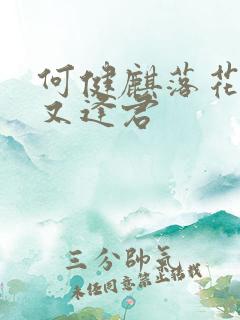 何健麒落花
又逢君
三分帥氣
未经同意禁止转载